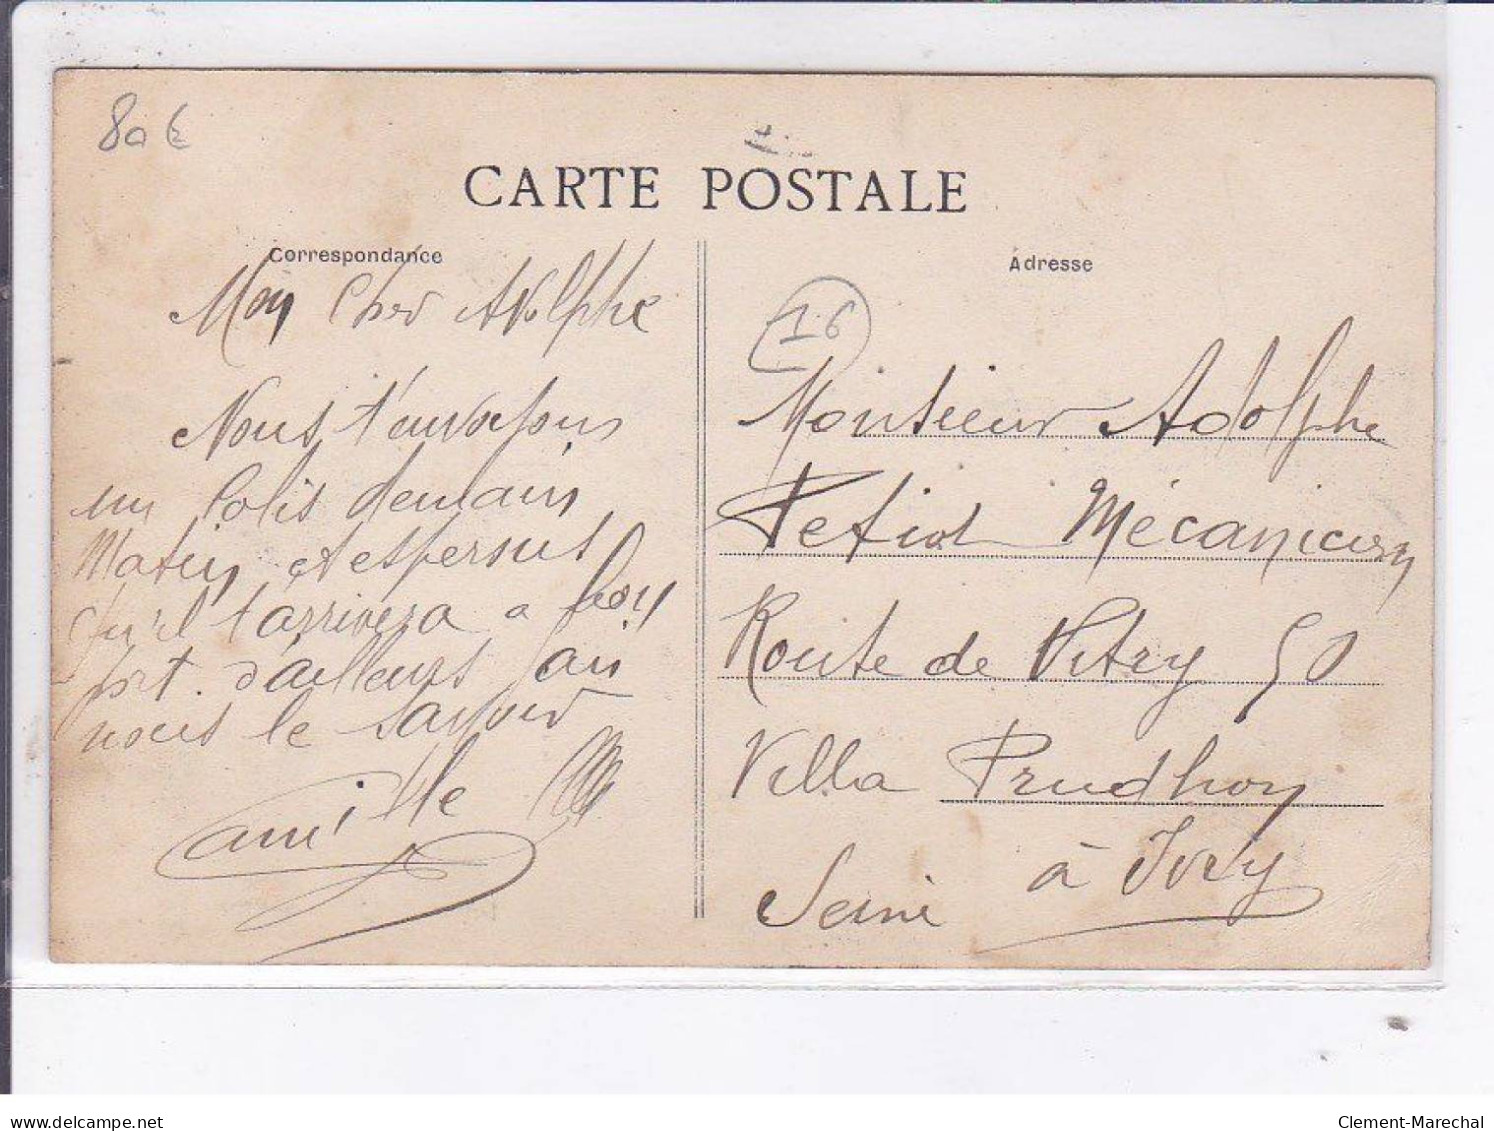 80 €
CARTE POSTALE
Correspondance
Mon Cher Adolphe
Nous t'anvoyons
un Colis demain
Matin et esperons
qu'il t'arrivera a bon
port. d'ailleurs fai
nous le savoir
Camille
Adresse
16
Monsieur Adolphe
Petiot Mécanicien
Route de Vitry 50
Villa Prudhon
à Ivry
Seine
delcampe.net
Clement-Marechal